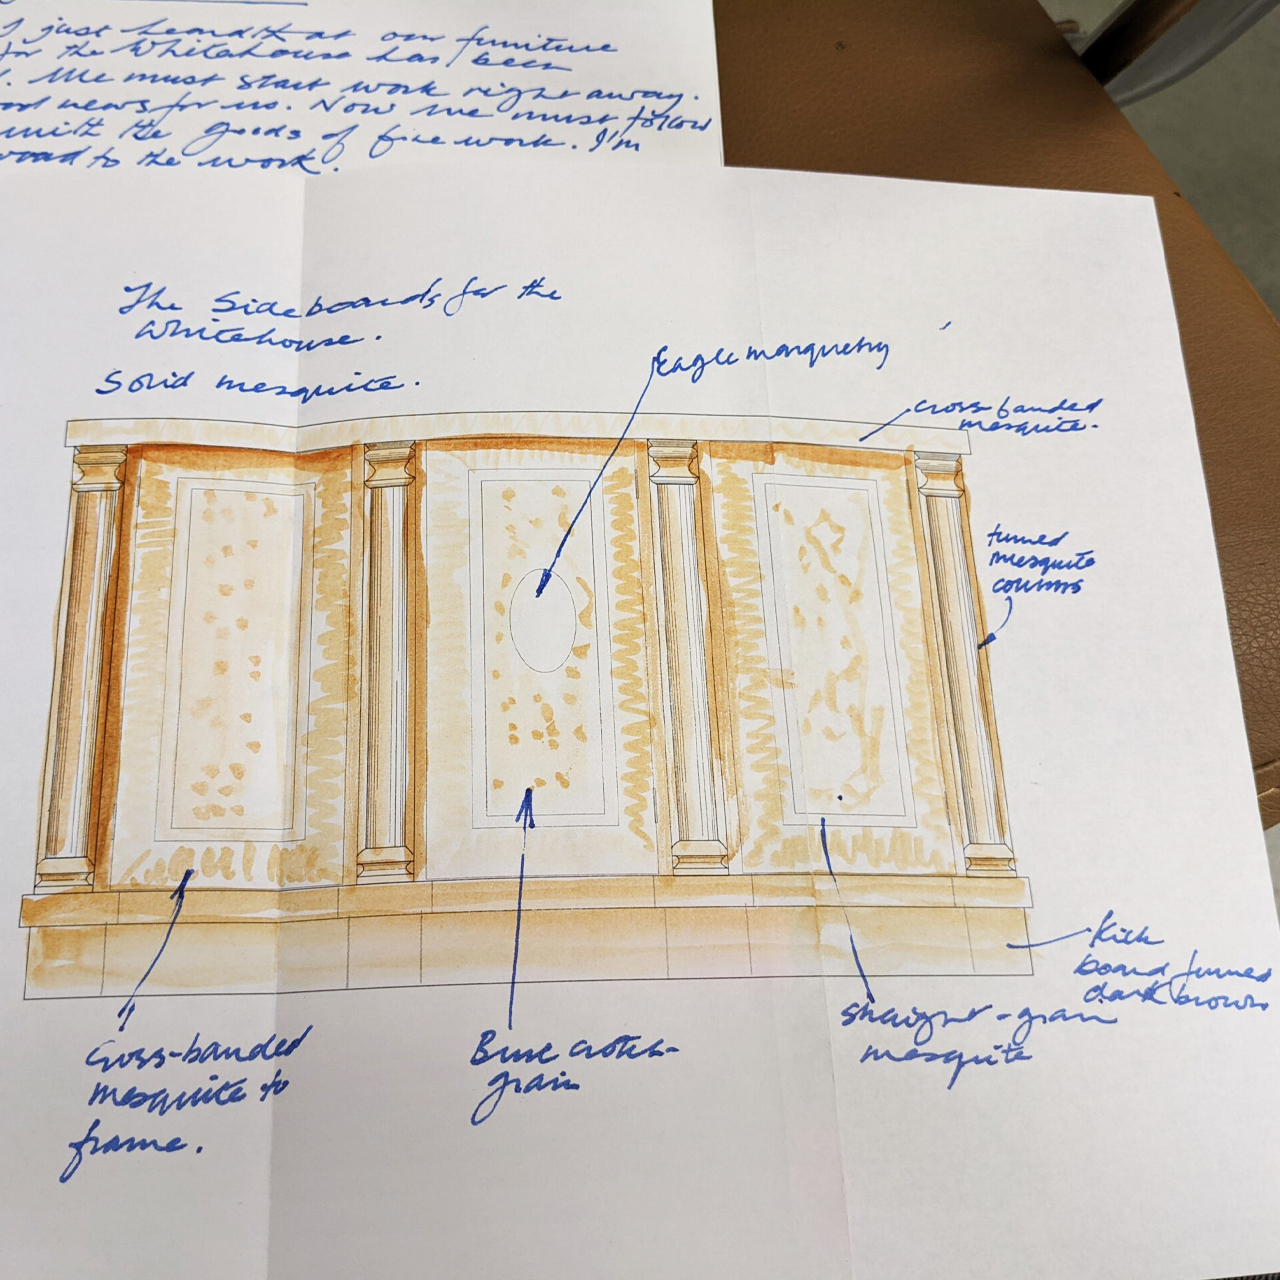 I just heard that our furniture
for the Whitehouse has been
. We must start work right away.
news for us. Now we must follow
with the goods of fine work. I'm
to the work.
The Sideboards for the
Whitehouse.
Solid mesquite.
Eagle marquetry
cross-banded
mesquite.
turned
mesquite
columns
Kick
board fumed
dark brown
straight-grain
mesquite
Burr crotch-
grain
Cross-banded
mesquite to
frame.